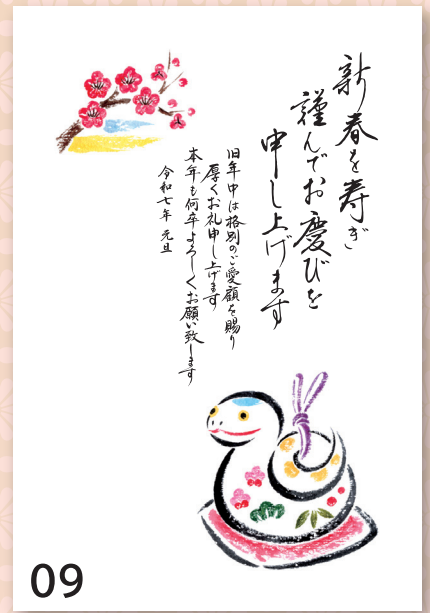 新春を寿ぎ
謹んでお慶びを
申し上げます
旧年中は格別のご愛顧を賜り
厚くお礼申し上げます
本年も何卒よろしくお願い致します
令和七年 元旦
09